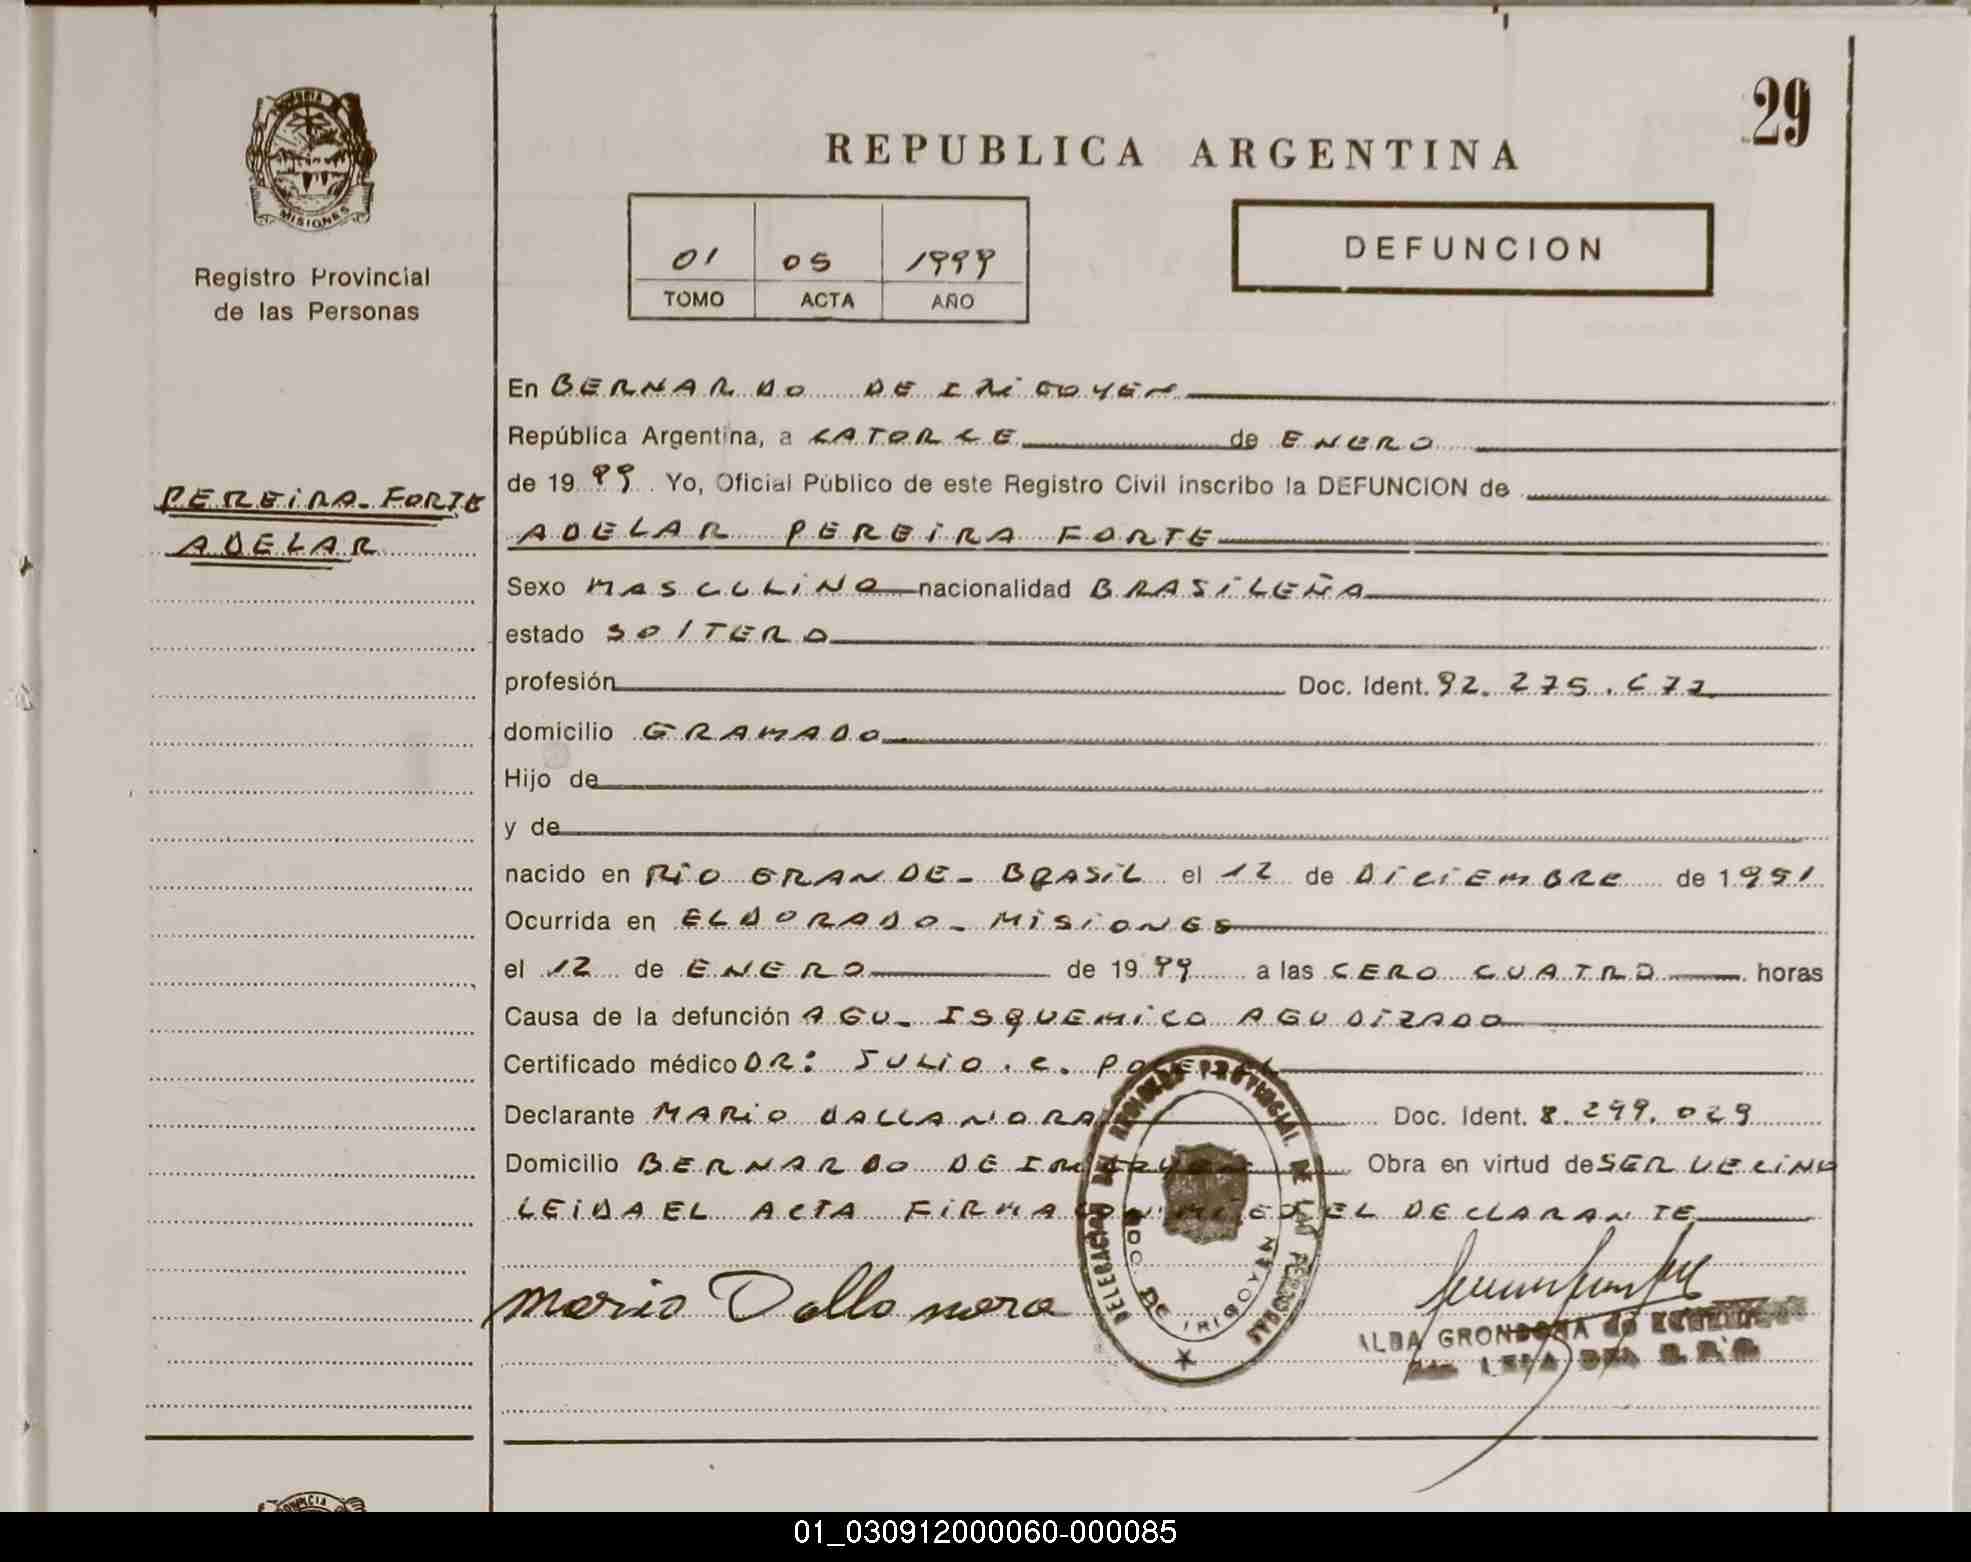 29
REPUBLICA ARGENTINA
PROVINCIA
MISIONES
Registro Provincial
de las Personas
01 05 1999
TOMO ACTA AÑO
DEFUNCION
PEREIRA-FORTE
ADELAR
En BERNARDO DE IRIGOYEN
República Argentina, a CATORCE de ENERO
de 19 99. Yo, Oficial Público de este Registro Civil inscribo la DEFUNCION de
ADELAR PEREIRA FORTE
Sexo MASCULINO nacionalidad BRASILEÑA
estado SOLTERO
profesión Doc. Ident. 92.275.677
domicilio GRAMADO
Hijo de
y de
nacido en RIO GRANDE - BRASIL el 12 de DICIEMBRE de 1951
Ocurrida en ELDORADO - MISIONES
el 12 de ENERO de 19 99 a las CERO CUATRO horas
Causa de la defunción ACV - ISQUEMICO AGUDIZADO
Certificado médico DR: JULIO. C.
Declarante MARIO DALLANORA Doc. Ident. 8.299.029
Domicilio BERNARDO DE IRIGOYEN Obra en virtud de SER VECINO
LEIDA EL ACTA FIRMA CONMIGO EL DECLARANTE
Mario Dallo nora
DELEGACION DEL REGISTRO PROVINCIAL DE LAS PERSONAS
BDO. DE IRIGOYEN
ALBA GRONDONA de
01_030912000060-000085